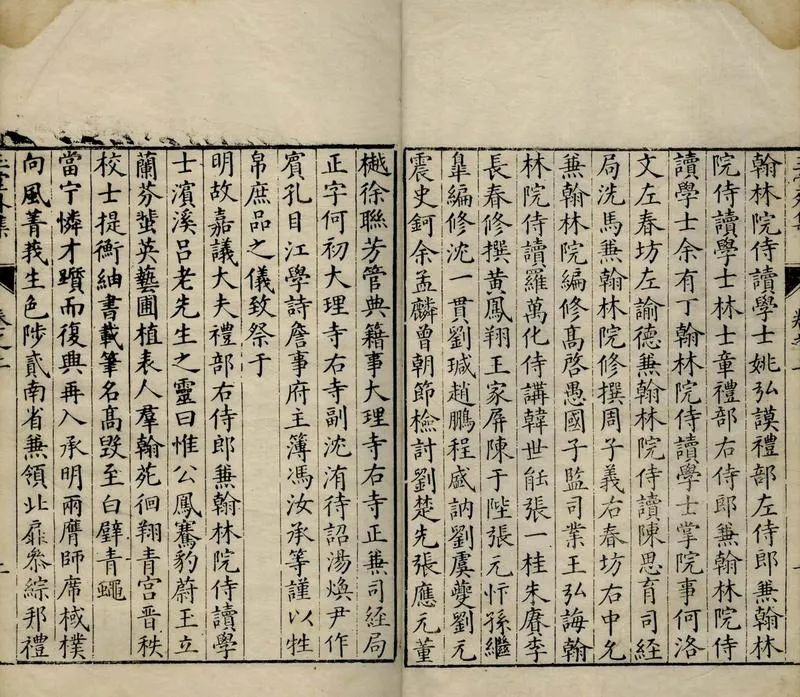 翰林院侍讀學士姚弘謨禮部左侍郎兼翰林
院侍讀學士林士章禮部右侍郎兼翰林院侍
讀學士余有丁翰林院侍讀學士掌院事何洛
文左春坊左諭德兼翰林院侍讀陳思育司經
局洗馬兼翰林院修撰周子義右春坊右中允
兼翰林院編修高啓愚國子監司業王弘誨翰
林院侍讀羅萬化侍講韓世能張一桂朱賡李
長春修撰黃鳳翔王家屏陳于陛張元忭孫繼
臯編修沈一貫劉瑊趙鵬程盛訥劉虞夔劉元
震史鈳余孟麟曾朝節檢討劉楚先張應元董
樾徐聯芳管典籍事大理寺右寺正兼司經局
正字何初大理寺右寺副沈洧待詔湯煥尹作
賓孔目江學詩詹事府主簿馮汝承等謹以牲
帛庶品之儀致祭于
明故嘉議大夫禮部右侍郎兼翰林院侍讀學
士濱溪呂老先生之靈曰惟公鳳騫豹蔚玉立
蘭芬蜚英藝圃植表人羣翰苑徊翔青宮晋秩
校士提衡紬書載筆名高毀至白璧青蠅
當宁憐才躓而復興再入承明兩膺師席棫樸
向風菁莪生色陟貳南省兼領北扉叅綜邦禮